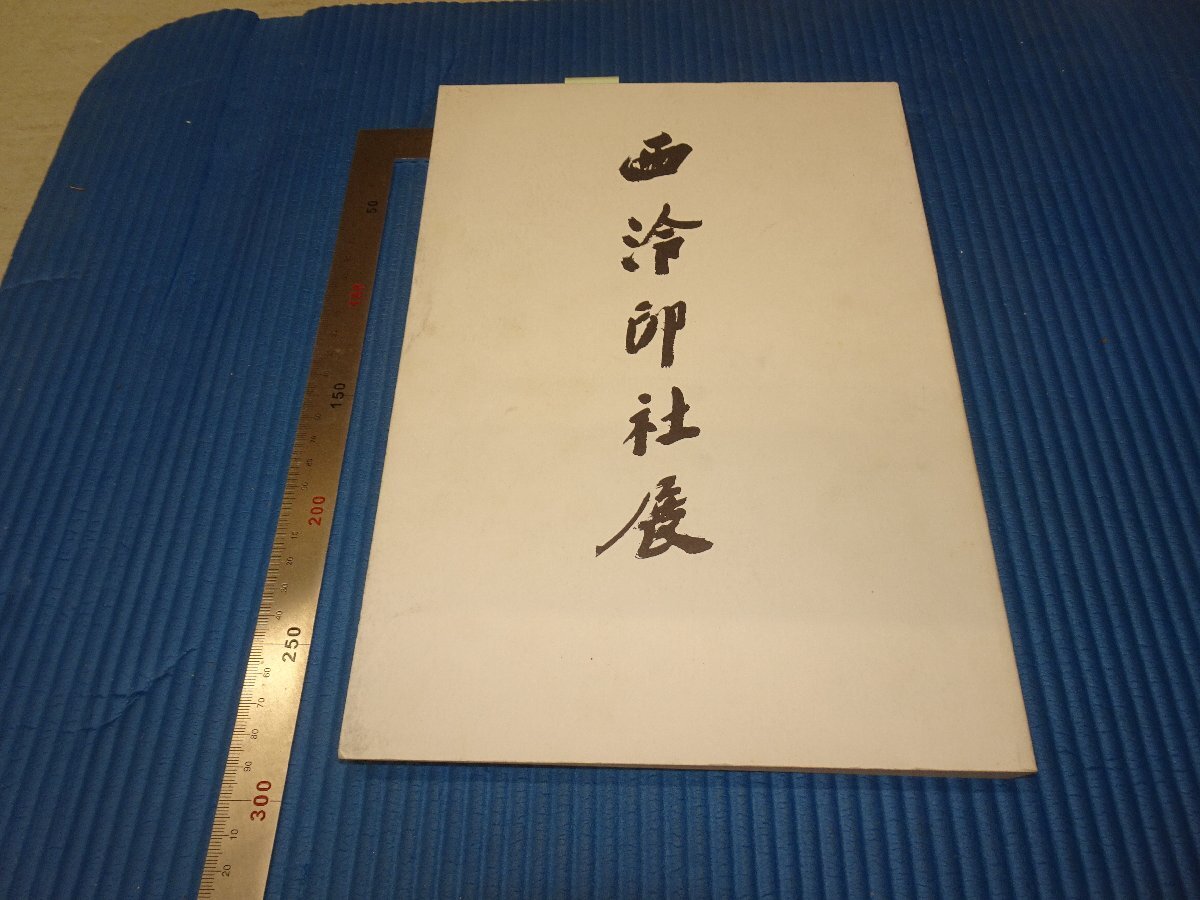 西泠印社展
50
100
150
200
250
300